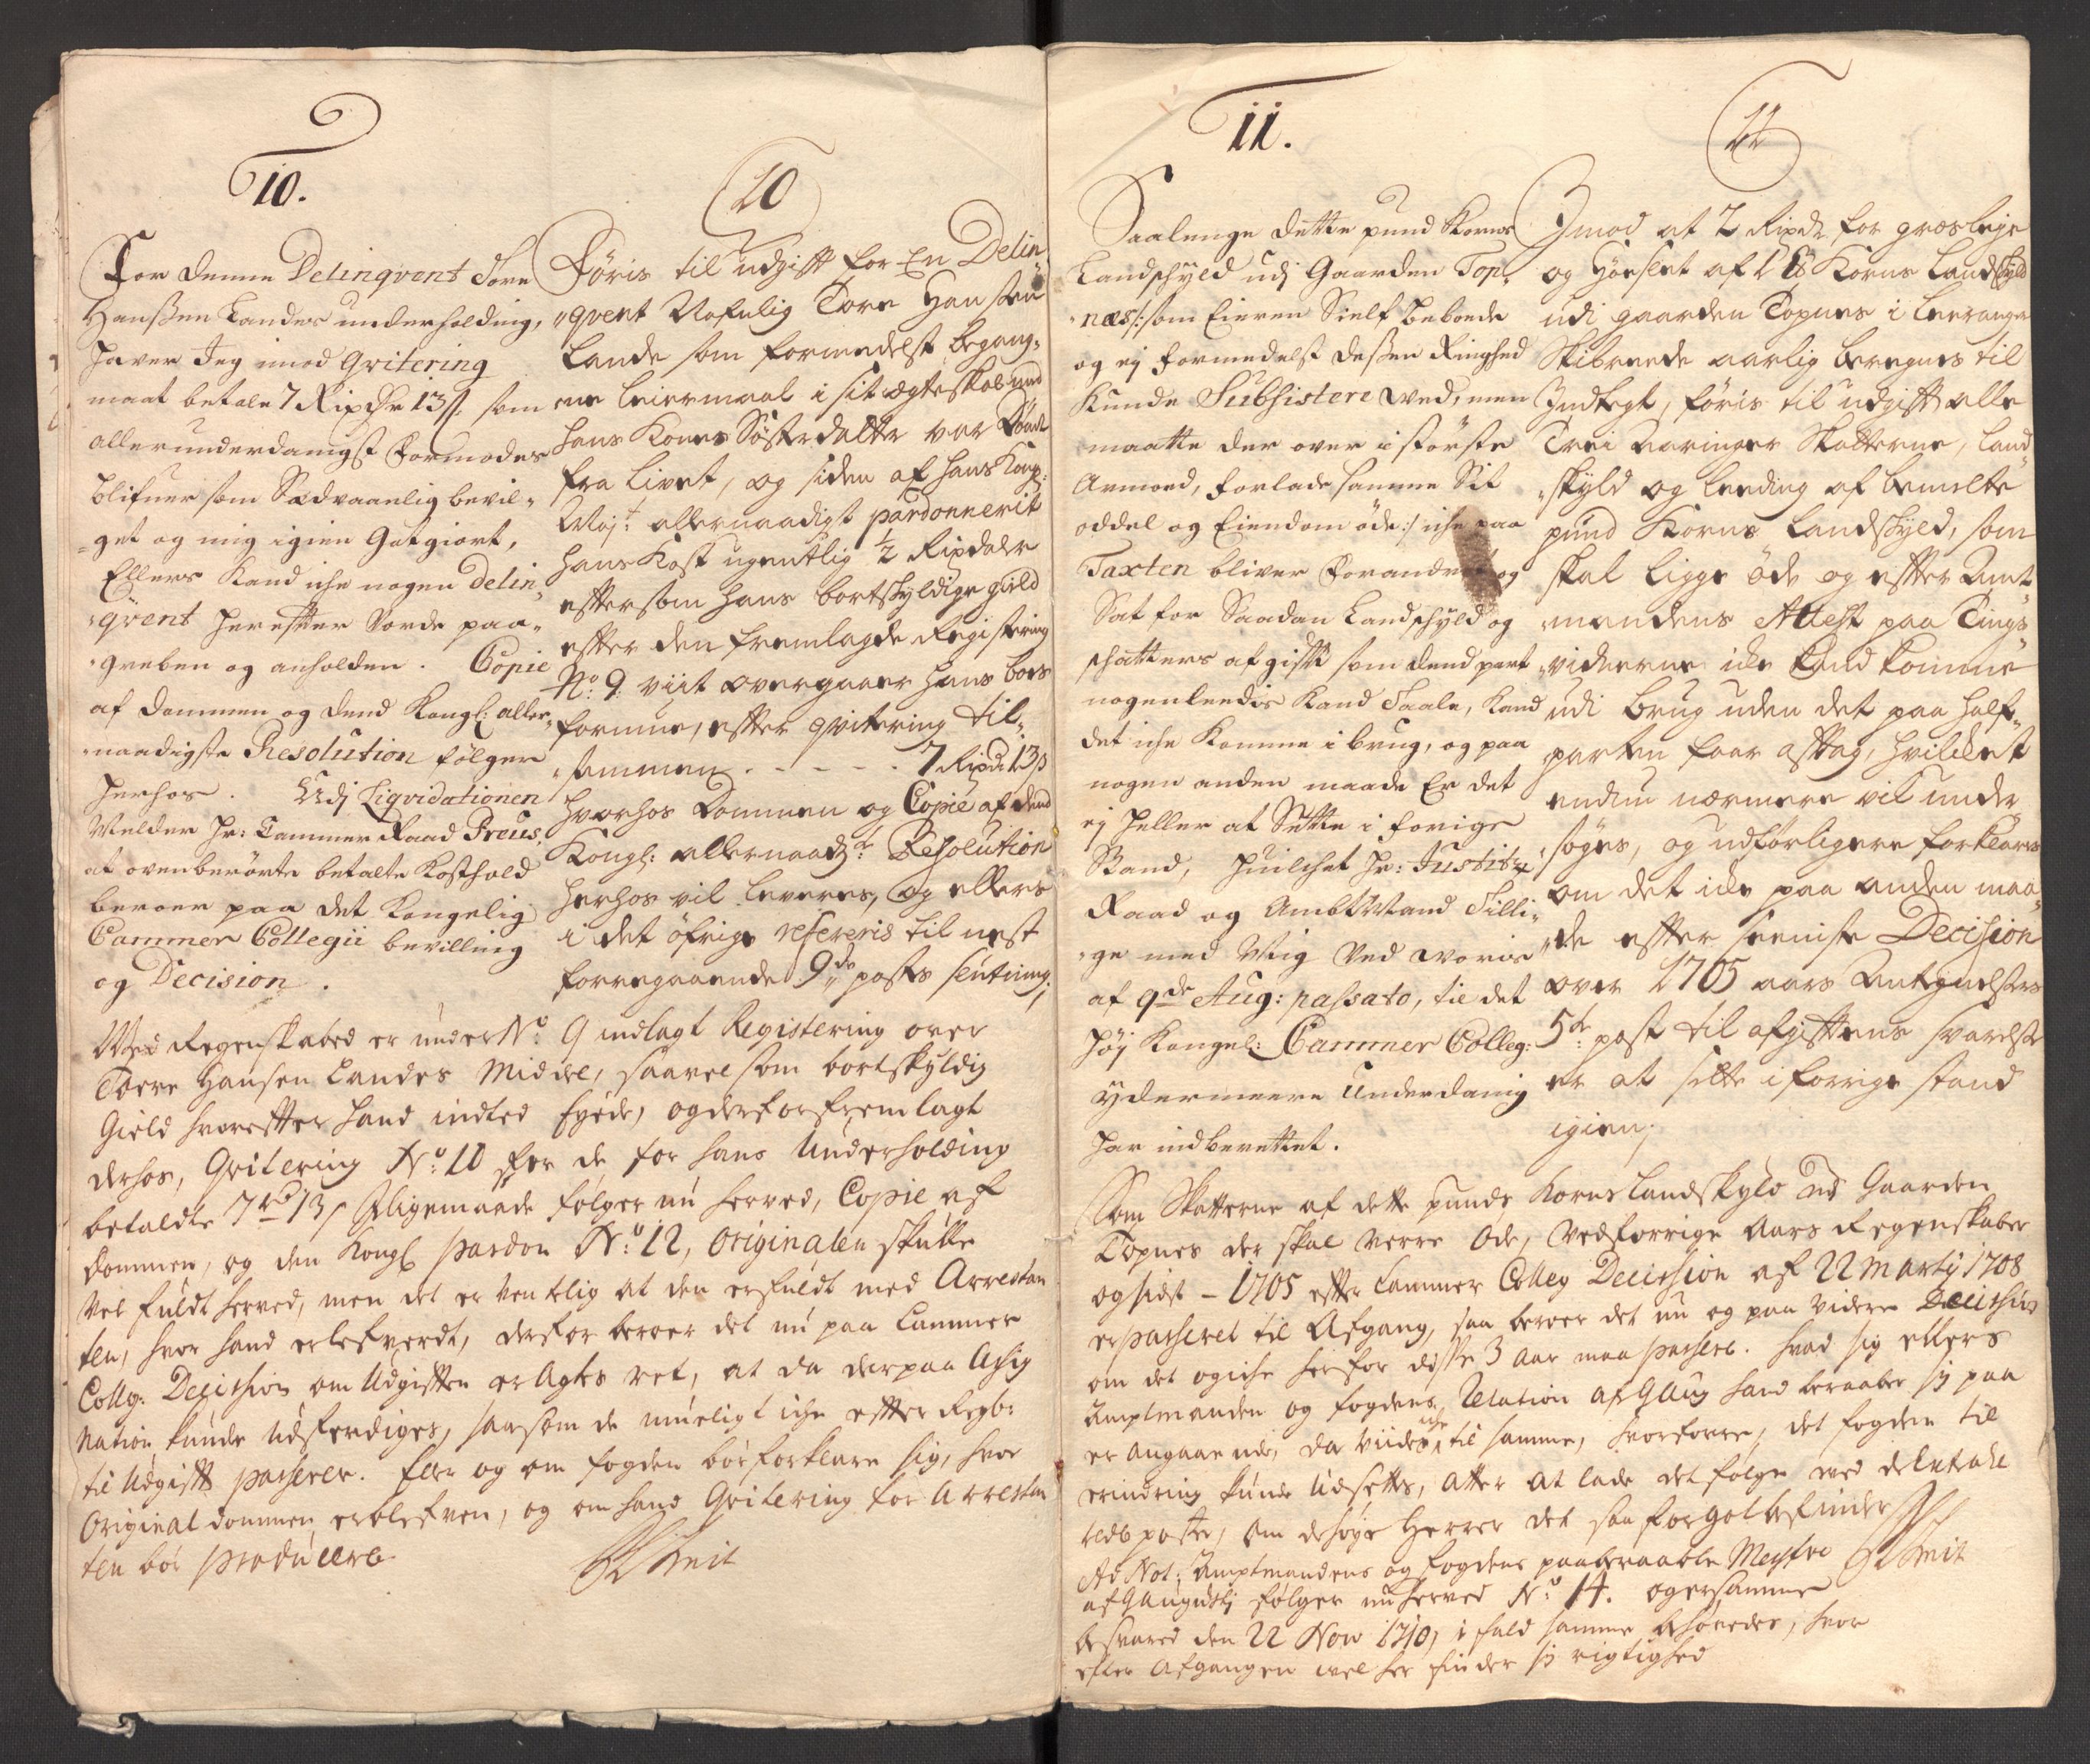 10.
For denne Delinqvent Tore
Hanßen Landes underholding,
haver Jeg imod Qvitering
maat betale 7 Rixdr 13 s. som
allerunderdanigst formodes
blifuer som Sædvaanlig bevil-
get og mig igien Gotgiort,
Ellers Kand iche nogen Delin-
qvent herefter Vorde paa-
greben og anholden. Copie
af dommen og dend Kongl: aller-
naadigste Resolution følger
herhos. Udj Liqvidationen
Melder Hr: Cammer Raad Preus,
at ovenberørte betalte Kosthold
beroer paa det Kongelig
Cammer Collegii bevilling
og Decision.
10
Føris til udgift for En Delin-
qvent Nafnlig Tore Hansen
Lande som formedelst begang-
ne leiermaal i sit ægteskab med
hans Kones Søster datter var Dømt
fra Livet, og siden af hans Kong:
Mayt: allernaadigst pardonnerit
hans Kost ugentlig ½ Rixdaler
eftersom hans bortskyldige gield
efter den fremlagde Registering
No: 9 viit overgaaer hans boes
formue, efter qvitering til-
sammen - - - - 7 Rixdr 13 s
hvorhos Dommen og Copie af dend
Kongl: allernaadst: Resolution
herhos vil leveres, og ellers
i det øfrige refereris til nest
forregaaende 9de posts slutning;
Med Regenskabed er under No: 9 indlagt Registering over
Toere Hansen Landes Middel, saavel som bortskyldig
Gield hvorefter hand indted Eyede, og derfor fremlagt
derhos, Qvitering No: 10 for de for hans Underholding
betaldte 7 rd 13 s Jligemaade følger nu herved, Copie af
dommen, og den Kongl pardon No: 12, Originalen skulle
vel fuldt herved, men det er ventelig at den erfuldt med Arrestan
ten, hvor hand er lefverdt, derfor beroer det nu paa Cammer
Colleg: Decishion om Udgiften er Agtes ret, at da derpaa Ashig
nation kunde Udferdiges, saasom de mueligt iche efter Regb:
til Udgift passerer. Eller og om fogden bør forklare sig, hvor
Original dommen er blefven, og om hand Qvitering for Arrestan
ten bør producere
11.
Saalenge dette pund Korns
Landschyld udj Gaarden Top-
næs /: som Eieren Sielf beboede
og ej formedelst deßen Ringhed
Kunde Subsistere ved, men
maatte der over i største
Armoed, forlade samme Sit
oddel og Eiendom øde :/ iche paa
Taxten bliver forandret og
Sat for Saadan Landschyld og
schatters afgift som dend part
nogenleedis Kand Taale, Kand
det iche Komme i brug, og paa
nogen anden maade Er det
ej heller at Sette i forige
Stand, huilchet Hr: Justitz
Raad og Ambtmand Tilli-
ge med Mig ved voris
af 9de Aug: passato, til det
høj Kongel: Cammer Colleg:
ydermeere Underdanig
har indberettet.
11
Imod at 2 Rixdr for græsleje
og Høeslet af 1 pd Korns Landskyld
udi gaarden Topnes i Leeranger
Skibreede aarlig beregnes til
Indtegt, føris til udgift alle
Trei Aaringer Skatterne, land-
skyld og leeding af bemelte
pund Korns Landskyld, som
skal ligge øde og efter Amt-
mandens Attest paa Tings-
vidnerne icke kand komme
udi brug uden det paa half-
parten faar aftag, hvilcket
endnu nærmere vil under-
søges, og udførligere forklares
om det icke paa anden maa-
de efter seeniste Decision
over 1705 aars Antegnelsers
5te: post til afgiftens svarelse
er at sette i forrige stand
igien;
Som Skatterne af dette punds Korns landskyld ud Gaarden
Topnes der skal verre Øde, ved forrige Aars Regenskaber
og sidst - 1705 efter Cammer Colleg Decishion af 22 Martij 1708
er passeret til Afgang, saa beroer det nu og paa videre Decishion
om det og iche herfor diße 3 Aar maa passere. hvad sig ellers
Amptmanden og fogdens Relation af 9 Aug hand beraaber sig paa
er angaaende, da viides iche til samme, hvorforre, det fogden til
erindring kunde Udsettes, atter at lade det følge med
poster, om de høye Herrer det saa for got befinder
Ad Not: Amptmandens og fogdens paaberaabte
af 9 Augustj følger nu herved No: 14. og er samme
besvared den 22 Nov 1710, i fald samme behøvedes, hvor
efter Afgangen vel her finder sig rigtighed